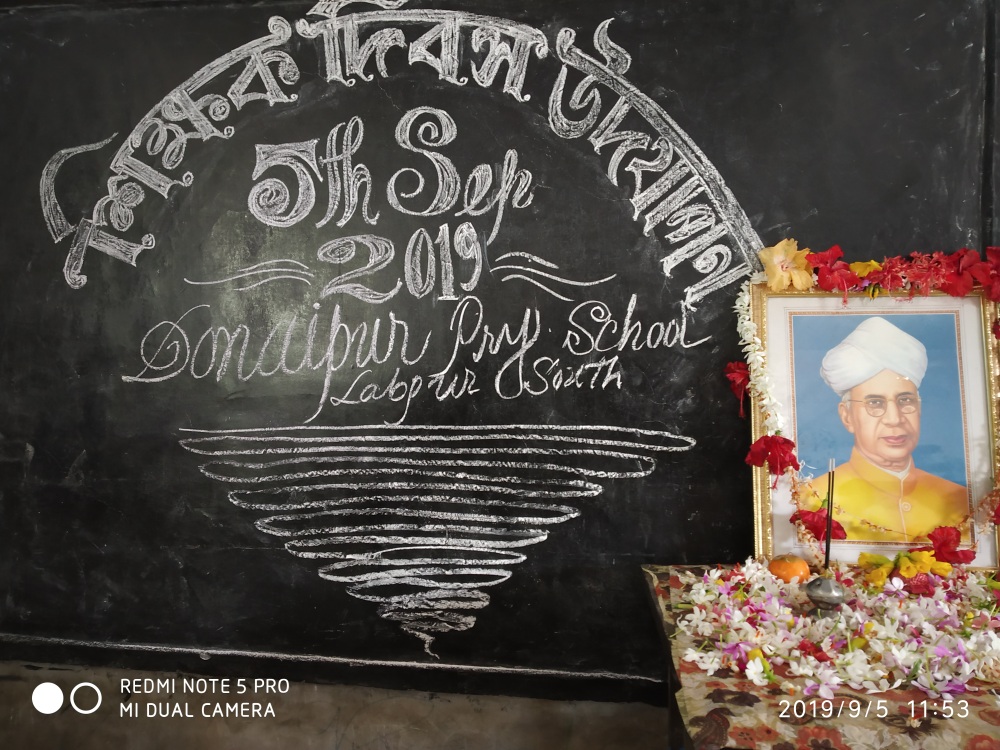 শিক্ষক দিবস উদযাপন
5th Sep
2019
Sonaipur Pry. School
Labpur South
REDMI NOTE 5 PRO
MI DUAL CAMERA
2019/9/5 11:53